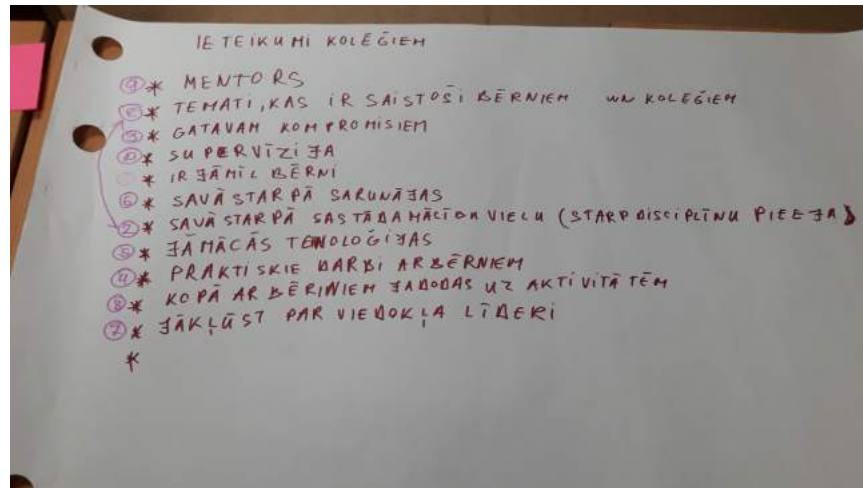 IETEIKUMI KOLĒĢIEM
9 * MENTORS
* TEMATI, KAS IR SAISTOŠI BĒRNIEM UN KOLĒĢIEM
3 * GATAVAM KOMPROMISIEM
10 * SUPERVĪZIJA
* IR JĀMĪL BĒRNI
6 * SAVĀ STARPĀ SARUNĀJAS
2 * SAVĀ STARPĀ SASTĀDA MĀCĪBU VIELU (STARPDISCIPLĪNU PIEEJA)
5 * JĀMĀCĀS TEHNOLOĢIJAS
4 * PRAKTISKIE DARBI AR BĒRNIEM
8 * KOPĀ AR BĒRINIEM JADODAS UZ AKTIVITĀTĒM
7 * JĀKĻŪST PAR VIEDOKĻA LĪDERI
*